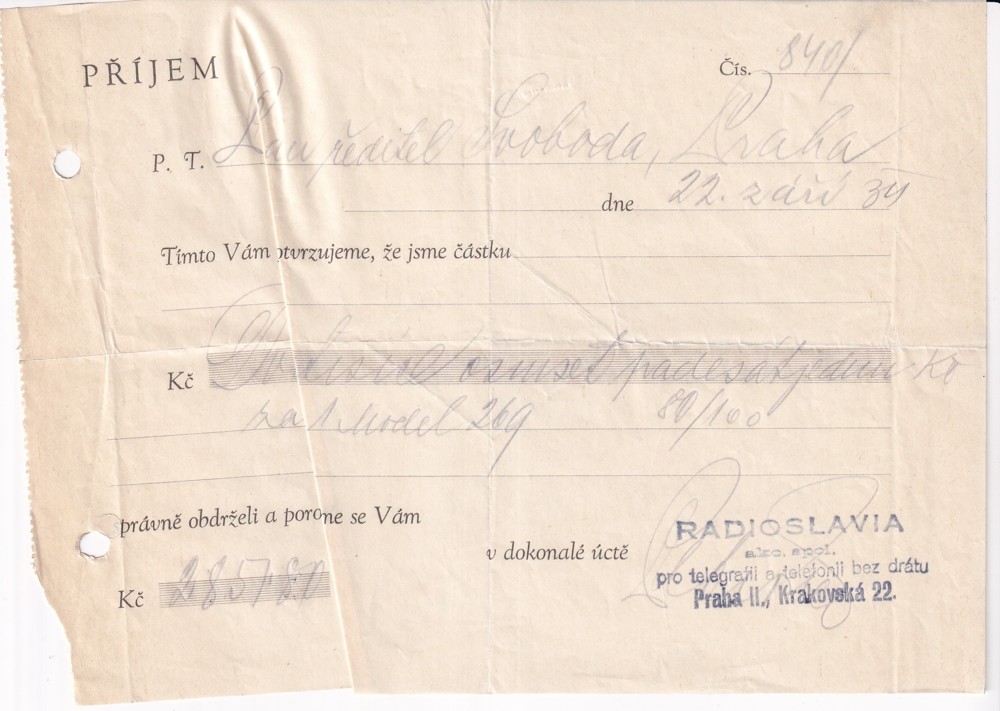 PŘÍJEM
Čís. 840/
P. T. Pan ředitel Svoboda, Praha
dne 22. září 34
Tímto Vám potvrzujeme, že jsme částku
Kč Dvatisíce osmset padesátjedna Kč
za 1 Model 269 80/100
správně obdrželi a poroučíme se Vám
v dokonalé úctě
Kč 2851·80
RADIOSLAVIA
akc. spol.
pro telegrafii a telefonii bez drátu
Praha II., Krakovská 22.